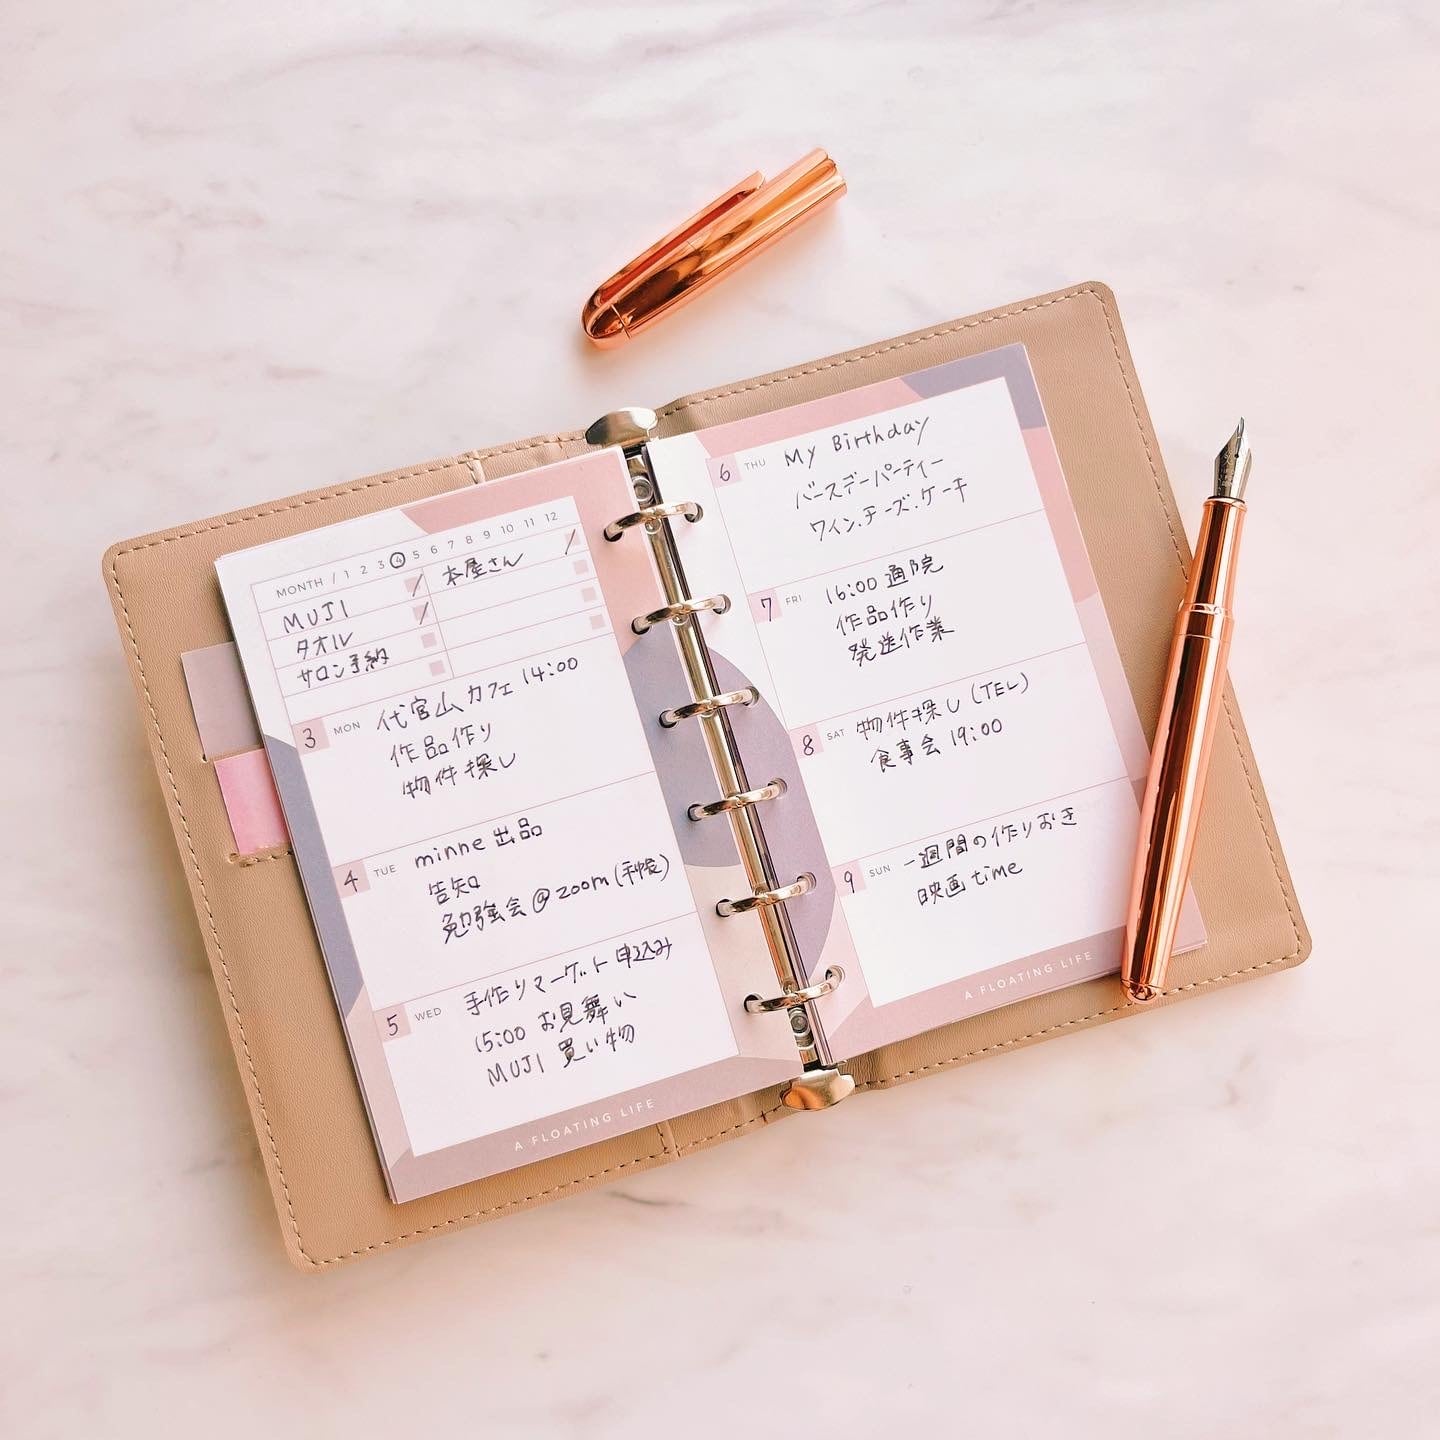 MONTH / 1 2 3 4 5 6 7 8 9 10 11 12
MUJI
タオル
サロン予約
本屋さん
3 MON 代官山カフェ 14:00
作品作り
物件探し
4 TUE minne 出品
告知
勉強会@zoom(手帳)
5 WED 手作りマーケット申込み
15:00 お見舞い
MUJI 買い物
A FLOATING LIFE
6 THU My Birthday
バースデーパーティー
ワイン.チーズ.ケーキ
7 FRI 16:00 通院
作品作り
発送作業
8 SAT 物件探し(TEL)
食事会 19:00
9 SUN 一週間の作りおき
映画 time
A FLOATING LIFE